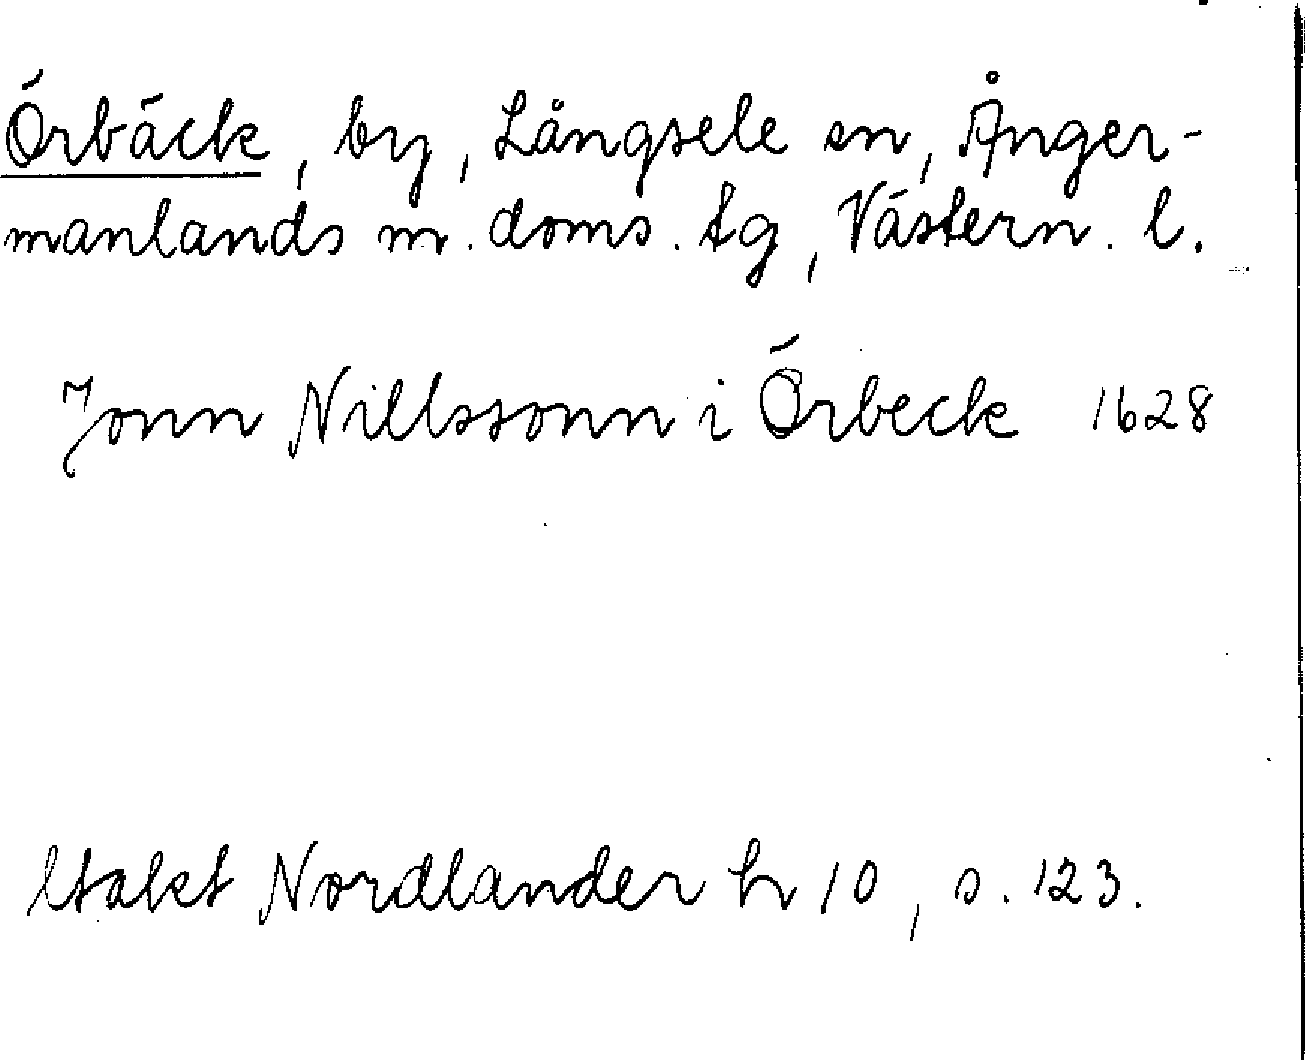 Örbäck, by, Långsele sn, Ånger-
manlands m. doms. tg, Västern. l.
Jonn Nillssonn i Örbeck 1628
ltakt Nordlander h 10, s. 123.